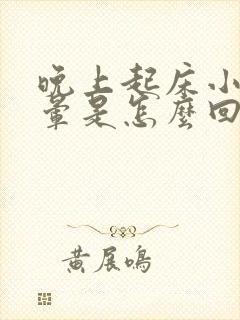 晚上起床小
暈是怎麼回
黃展鳴